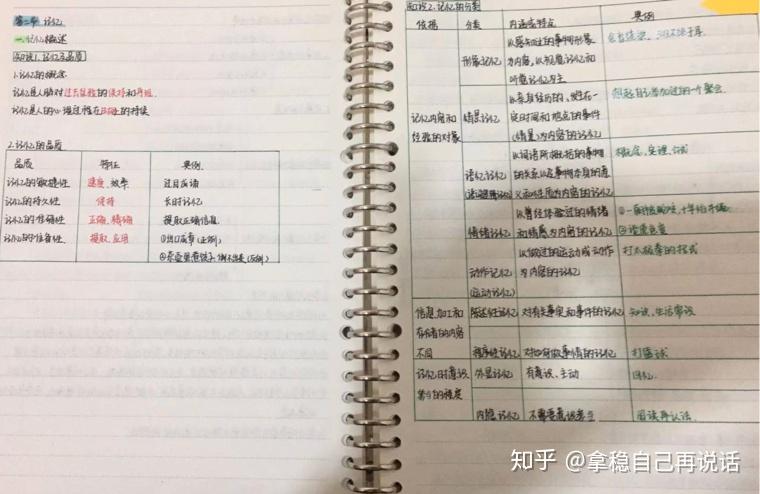 第二节 记忆
一.记忆概述
知识1.记忆及品质
1.记忆的概念
记忆是人脑对过去经验的保持和再现
记忆是人的心理过程在时间上的持续
2.记忆的品质
品质 特征 案例
记忆的敏捷性 速度、效率 过目成诵
记忆的持久性 保持 长时记忆
记忆的准确性 正确、精确 提取正确信息
记忆的准备性 提取、应用 ①出口成章(正例)
②茶壶里煮饺子 倒不出来(反例)
知识2.记忆的分类
依据 分类 内涵或特点 案例
记忆内容和经验的对象
形象记忆 以感知过的事物形象
为内容,以视觉记忆和
听觉记忆为主
情景记忆 以亲身经历的、发生在一
定时间和地点的事件
(情景)为内容的记忆
想起自己参加过的一个聚会
语义记忆 以词语所概括的事物
的关系以及事物本身的意
义和性质为内容的记忆
概念、定理、公式
情绪记忆 以曾经体验过的情绪
和情感为内容的记忆
①一朝被蛇咬,十年怕井绳
动作记忆
(运动记忆)
以做过的运动或动作
为内容的记忆
打太极拳的招式
信息加工和
存储的内容
不同
陈述性记忆 对有关事实和事件的记忆 知识、生活常识
程序性记忆 对如何做事情的记忆
记忆时意识
参与的程度
外显记忆 有意识、主动 回忆
内隐记忆 不需要意识参与
知乎 @拿稳自己再说话